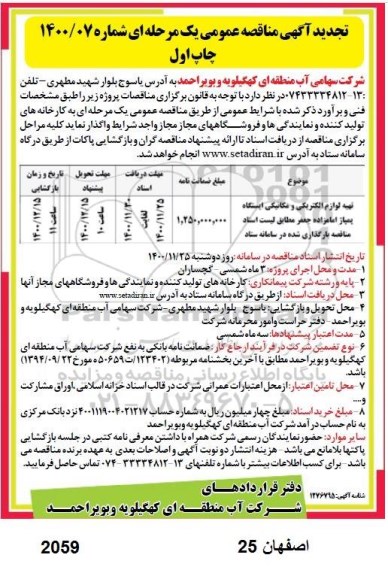 تجدید آگهی مناقصه عمومی یک مرحله ای شماره ۱۴۰۰/۰۷
چاپ اول
شرکت سهامی آب منطقه ای کهگیلویه و بویراحمد به آدرس یاسوج بلوار شهید مطهری – تلفن
۰۷۴۳۳۳۳۴۸۱۲-۱۳ در نظر دارد با توجه به قانون برگزاری مناقصات پروژه زیر را طبق مشخصات
فنی و برآورد ذکر شده با شرایط عمومی از طریق مناقصه عمومی یک مرحله ای به کارخانه های
تولید کننده و نمایندگی ها و فروشگاههای مجاز واجد شرایط واگذار نماید کلیه مراحل
برگزاری مناقصه از دریافت اسناد تا ارائه پیشنهاد مناقصه گران و بازگشایی پاکات از طریق درگاه
سامانه ستاد به آدرس www.setadiran.ir انجام خواهد شد.
موضوع
مبلغ ضمانت نامه
مهلت دریافت اسناد
مهلت تحویل پیشنهاد
تاریخ و زمان بازگشایی
تهیه لوازم الکتریکی و مکانیکی ایستگاه
پمپاژ امامزاده جعفر مطابق لیست اسناد
مناقصه بارگذاری شده در سامانه ستاد
۱,۲۵۰,۰۰۰,۰۰۰
۱۴۰۰/۱۱/۲۵ لغایت ۱۴۰۰/۱۱/۳۰
۱۴۰۰/۱۲/۱۵ ساعت ۱۰
۱۴۰۰/۱۲/۱۵ ساعت ۱۱
تاریخ انتشار اسناد مناقصه در سامانه: روز دوشنبه ۱۴۰۰/۱۱/۲۵
۱- مدت و محل اجرای پروژه: ۳ ماه شمسی - گچساران
۲- پایه و رشته شرکت پیمانکاری: کارخانه های تولید کننده و نمایندگی ها و فروشگاههای مجاز آنها
۳- محل دریافت اسناد: از طریق درگاه سامانه ستاد به آدرس www.setadiran.ir
۴- محل تحویل و بازگشایی: یاسوج بلوار شهید مطهری – شرکت سهامی آب منطقه ای کهگیلویه و
بویراحمد- دفتر حراست و امور محرمانه شرکت
۵- مدت اعتبار پیشنهادها: سه ماه شمسی
۶- نوع تضمین شرکت در فرآیند ارجاع کار: ضمانت نامه بانکی به نفع شرکت سهامی آب منطقه ای
کهگیلویه و بویراحمد مطابق با آخرین بخشنامه مربوطه (۱۲۳۴۰۲/ت۵۰۶۵۹ه مورخ ۱۳۹۴/۰۹/۲۲)
باشد.
۷- محل تامین اعتبار: از محل اعتبارات عمرانی شرکت در قالب اسناد خزانه اسلامی، اوراق مشارکت
و....
۸- مبلغ خرید اسناد: مبلغ چهار میلیون ریال به شماره حساب ۴۰۰۱۱۱۹۰۰۴۰۲۱۲۱۷ نزد بانک مرکزی
به نام حساب درآمد شرکت آب منطقه ای کهگیلویه و بویراحمد
سایر موارد: حضور نمایندگان رسمی شرکت همراه با داشتن معرفی نامه کتبی در جلسه بازگشایی
پاکتها بلامانع می باشد - هزینه انتشار دو نوبت آگهی و اصلاحات بعدی به عهده برنده مناقصه می
باشد - برای کسب اطلاعات بیشتر با شماره تلفنهای ۱۳-۳۳۳۳۴۸۱۲-۰۷۴ تماس حاصل فرمایید.
شناسه آگهی: ۱۲۷۶۷۹۵
دفتر قراردادهای
شرکت آب منطقه ای کهگیلویه و بویراحمد
۰۲۱-۸۸۳۴۹۶۷۰-۵
اصفهان 25
2059